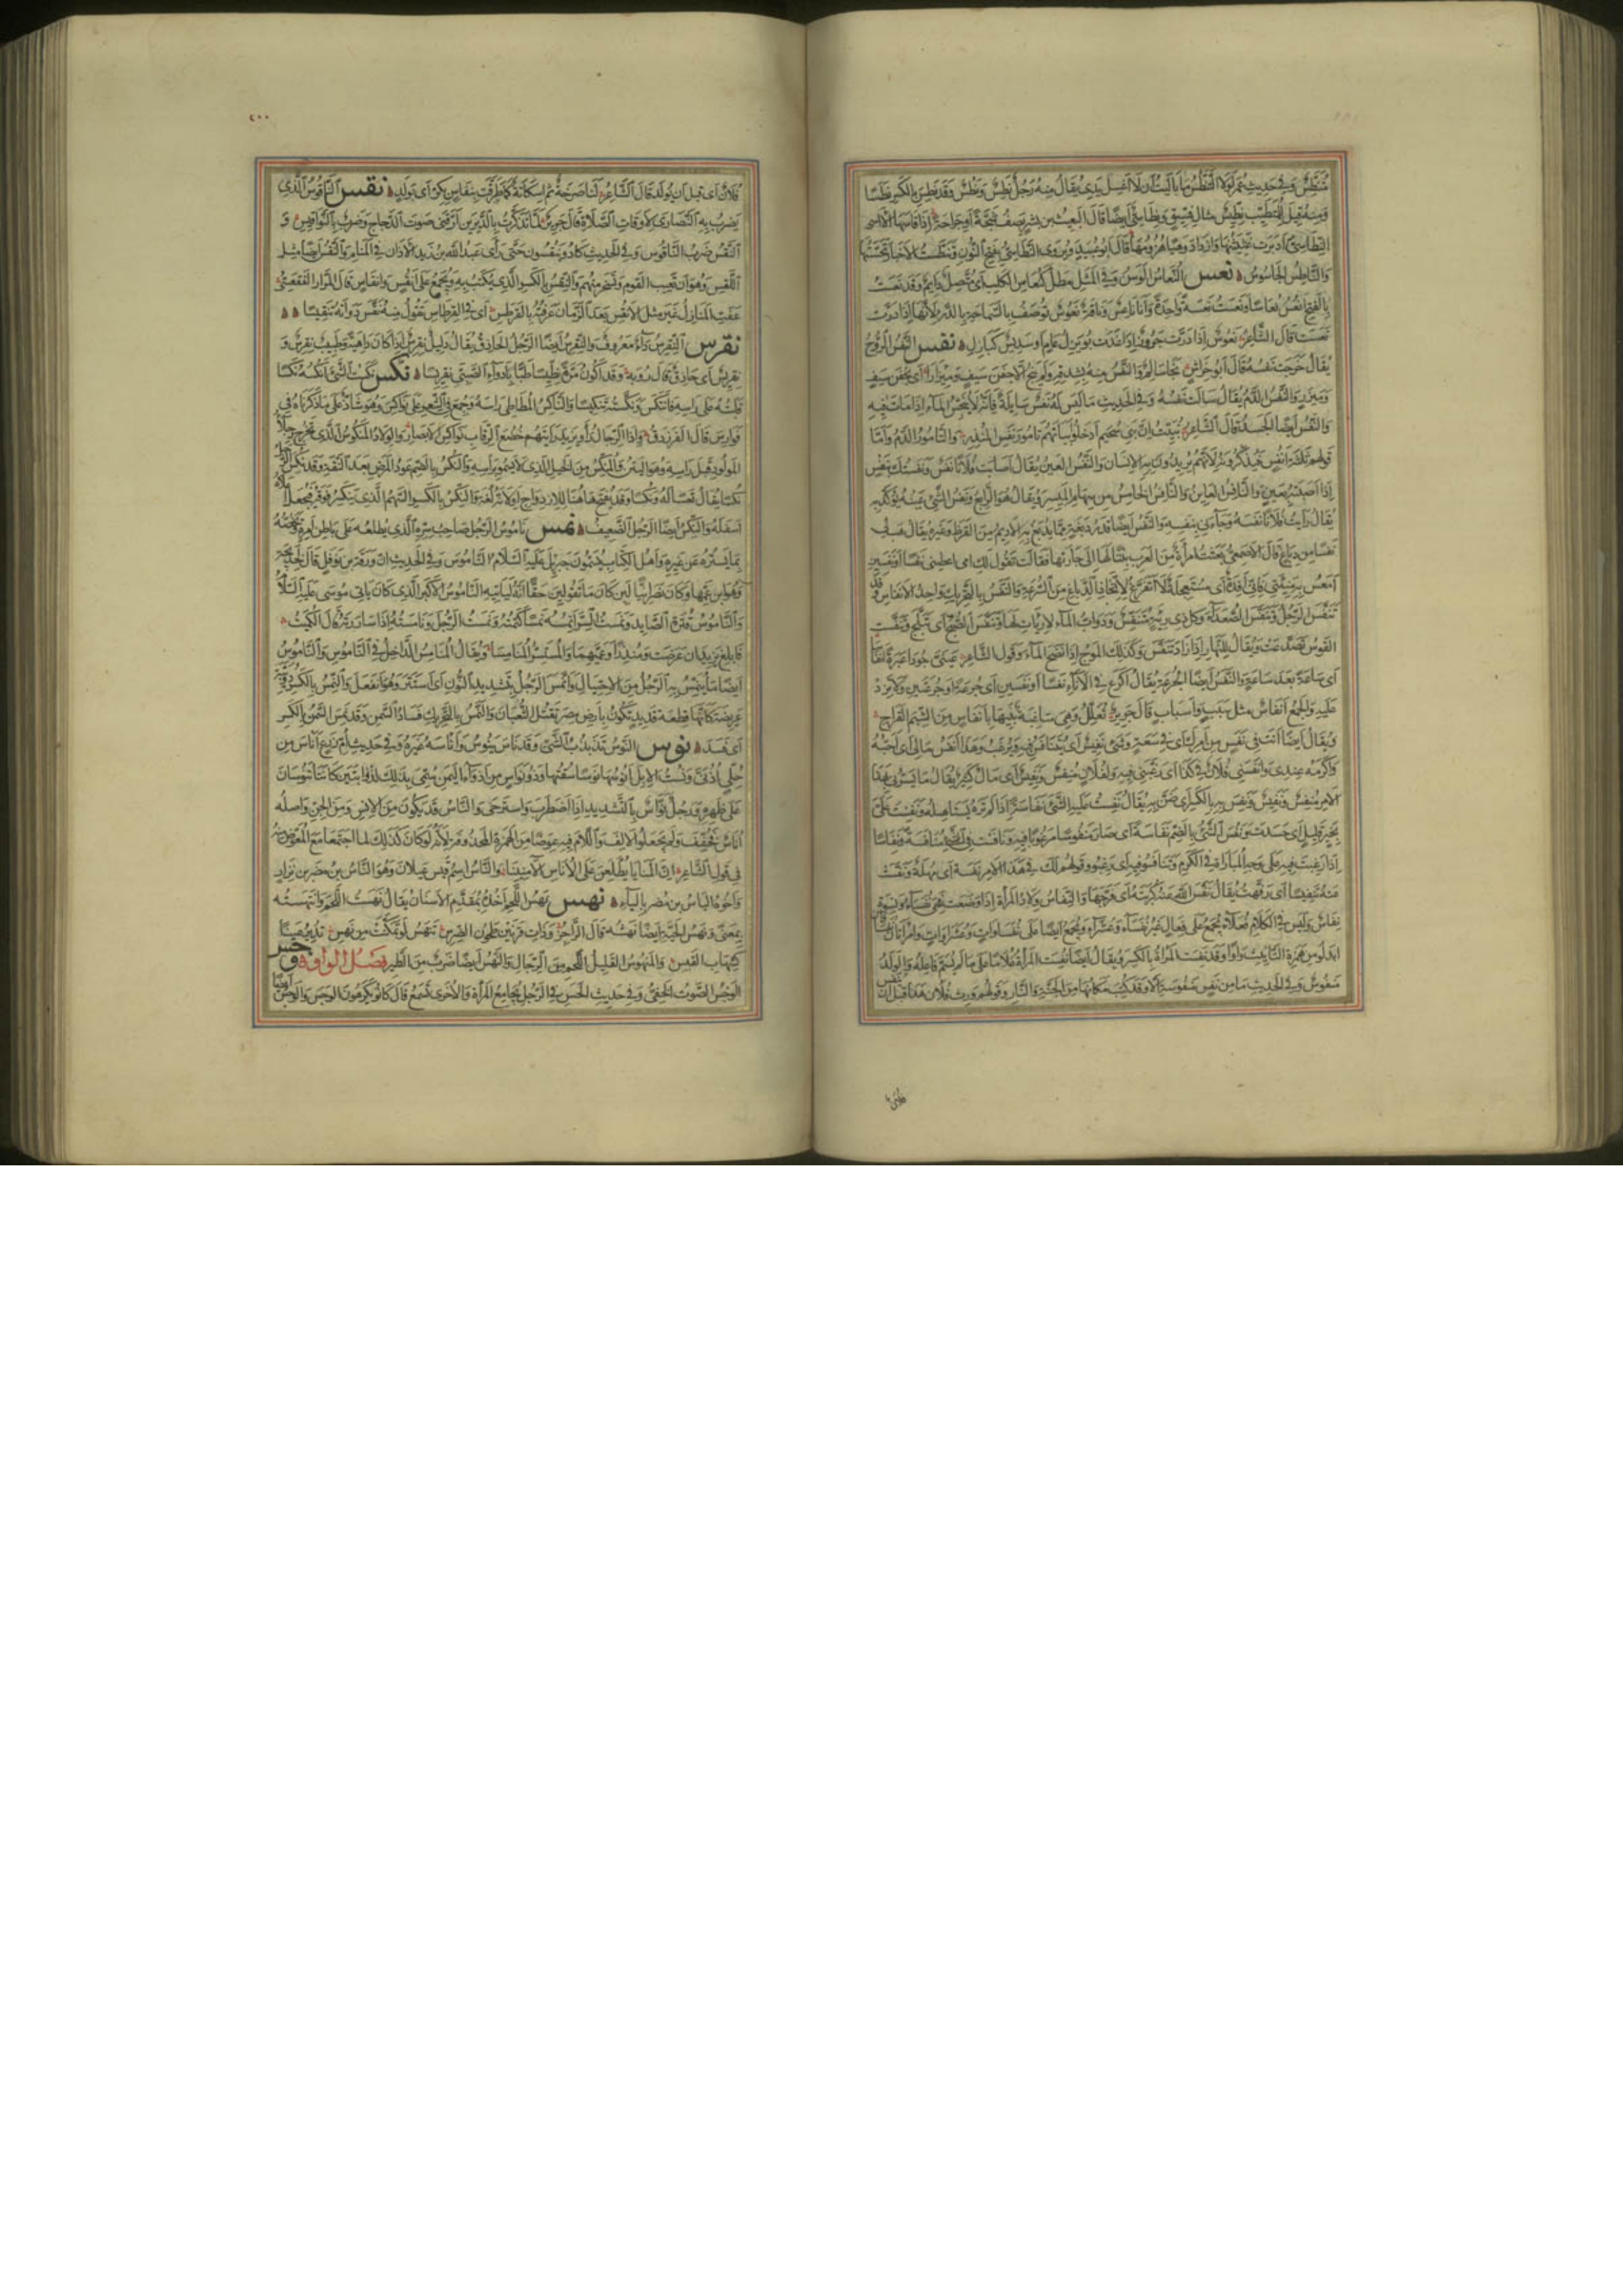 متنطس وفي حديث عمر لولا التنطس ما باليت أن لا أغسل يدي يقال منه رجل نطس ونطس وقد نطس بالكسر نطسا
ومنه قيل للمتطبب نطيس مثال فسيق ونطاسي أيضا قال البعيث بن بشر يصف شجة أو جراحة إذا قاسها الآسي
النطاسي أدبرت غثيثتها وازداد وهيا هزومها قال أبو عبيد ويروى النطاسي بفتح النون وتنطست الأخبار تجسستها
والناطس الجاسوس نعس النعاس الوسن وفي المثل مطل كنعاس الكلب أي متصل دائم وقد نعست
بالفتح أنعس نعاسا ونعست نعسة واحدة وأنا ناعس وناقة نعوس توصف بالسماحة بالدر لأنها إذا درت
نعست قال الشاعر نعوس إذا درت جروز إذا غدت بويزل عام أو سديس كبازل نفس النفس الروح
يقال خرجت نفسه قال أبو خراش نجا سالم والنفس منه بشدقه ولم ينج إلا جفن سيف ومئزرا أي بجفن سيف
ومئزر والنفس الدم يقال سالت نفسه وفي الحديث ما ليس له نفس سايلة فإنه لا ينجس الماء إذا مات فيه
والنفس أيضا الجسد قال الشاعر نبئت أن بني سحيم أدخلوا أبياتهم تامور نفس المنذر والتامور الدم وأما
قولهم ثلثة أنفس فيذكرونه لأنهم يريدون به الإنسان والنفس العين يقال أصابت فلانا نفس ونفستك بنفس
إذا أصبته بعين والنافس العاين والنافس الخامس من سهام الميسر ويقال هو الرابع ونفس الشيء عينه يؤكد به
يقال رأيت فلانا نفسه وجاءني بنفسه والنفس أيضا قدر دبغة مما يدبغ به الأديم من القرظ وغيره يقال هب لي
نفسا من دباغ قال الأصمعي بعثت امرأة من العرب بنتا لها إلى جارتها فقالت تقول لك امي اعطيني نفسا أو نفسين
أمعس به منيئتي فإني أفدة أي مستعجلة لا أتفرغ لاتخاذ الدباغ من السرعة والنفس بالتحريك واحد الأنفاس وقد
تنفس الرجل وتنفس الصعداء وكل ذي رئة متنفس ودواب الماء لا ريات لها وتنفس الصبح أي تبلج وتنفست
القوس تصدعت ويقال للنهار إذا زاد تنفس وكذلك الموج إذا نضح الماء وقول الشاعر عيني جودا عبرة أنفاسا
أي ساعة بعد ساعة والنفس أيضا الجرعة يقال اكرع في الإناء نفسا أو نفسين أي جرعة أو جرعتين ولا تزد
عليه والجمع أنفاس مثل سبب وأسباب قال جرير تعلل وهي ساغبة بنيها بأنفاس من الشبم القراح
ويقال أيضا أنت في نفس من أمرك أي في سعة وشيء نفيس أي يتنافس فيه ويرغب وهذا أنفس مالي أي أحبه
وأكرمه عندي وأنفسني فلان في كذا أي رغبني فيه ولفلان منفس ونفيس أي مال كثير يقال ما يسرني بهذا
الأمر منفس ونفيس ونفس به بالكسر أي ضن به يقال نفست عليه الشيء نفاسة إذا لم تره يستأهله ونفست علي
بخير قليل أي حسدت ونفس الشيء بالضم نفاسة أي صار منفوسا مرغوبا فيه ونافست في الشيء منافسة ونفاسا
إذا رغبت فيه على وجه المباراة في الكرم وتنافسوا فيه أي رغبوا وقولهم لك في هذا الأمر نفسة أي مهلة ونفست
عنه تنفيسا أي رفهت يقال نفس الله عنه كربته أي فرجها والنفاس ولاد المرأة إذا وضعت فهي نفساء ونسوة
نفاس وليس في الكلام فعلاء يجمع على فعال غير نفساء وعشراء ويجمع أيضا على نفساوات وعشراوات وامرأتان نفساوان
ابدلوا من همزة التأنيث واوا وقد نفست المرأة بالكسر ويقال أيضا نفست المرأة غلاما على ما لم يسم فاعله والولد
منفوس وفي الحديث ما من نفس منفوسة إلا وقد كتب مكانها من الجنة والنار وقولهم ورث فلان هذا قبل أن ينفس
فلان
٤٠٠
فلان أي قبل أن يولد قال الشاعر لنا صرخة ثم إسكاتة كما طرقت بنفاس بكر أي بولد نقس الناقوس الذي
يضرب به النصارى لأوقات الصلاة قال جرير لما تذكرت بالديرين أرقني صوت الدجاج وضرب بالنواقيس و
النقس ضرب الناقوس وفي الحديث كادوا ينقسون حتى رأى عبد الله بن زيد الأذان في المنام والنقس أيضا مثل
اللقس وهو أن تعيب القوم وتسخر منهم والنقس بالكسر الذي يكتب به ويجمع على أنقس وأنقاس قال المرار الفقعسي
عفت المنازل غير مثل الأنقس بعد الزمان عرفته بالقرطس أي في القرطاس تقول منه نقس دواته تنقيسا
نقرس النقرس داء معروف والنقرس أيضا الرجل الحاذق يقال دليل نقرس إذا كان داهية وطبيب نقرس و
نقريس أي حاذق قال رؤبة وقد أكون مرة نطيسا طبا بأدواء الصبي نقريسا نكس نكست الشيء أنكسه نكسا
قلبته على رأسه فانتكس ونكسته تنكيسا والناكس المطاطئ رأسه وجمع في الشعر على نواكس وهو شاذ على ما ذكرناه في
فوارس قال الفرزدق وإذا الرجال رأوا يزيد رأيتهم خضع الرقاب نواكس الأبصار والولاد المنكوس الذي تخرج رجلا
المولود قبل رأسه وهو اليتن والمنكس من الخيل الذي لا يسمو برأسه والنكس بالضم عود المرض بعد النقه وقد نكس الرجل
نكسا يقال تعسا له ونكسا وقد يفتح هاهنا للازدواج أو لأنه لغة والنكس بالكسر السهم الذي ينكسر فوقه فيجعل أعلاه
أسفله والنكس أيضا الرجل الضعيف نمس ناموس الرجل صاحب سره الذي يطلعه على باطن أمره ويخصه
بما يستره عن غيره وأهل الكتاب يسمون جبريل عليه السلام الناموس وفي الحديث أن ورقة بن نوفل قال لخديجة
وهو ابن عمها وكان نصرانيا لئن كان ما تقولين حقا إنه ليأتيه الناموس الأكبر الذي كان يأتي موسى عليه السلام
والناموس قترة الصايد ونمست السر أنمسه نمسا كتمته ونمست الرجل ونامسته إذا ساررته قال الكميت
فأبلغ يزيد إن عرضت ومنذرا وعميهما والمستسر المنامسا ويقال المنامس الداخل في الناموس والناموس
أيضا ما ينمس به الرجل من الاحتيال وانمس الرجل بتشديد النون أي استتر وهو انفعل والنمس بالكسر دويبة
عريضة كأنها قطعة قديد تكون بأرض مصر تقتل الثعبان والنمس بالتحريك فساد السمن وقد نمس السمن بالكسر
أي فسد نوس النوس تذبذب الشيء وقد ناس ينوس وأناسه غيره وفي حديث أم زرع أناس من
حلي أذني ونست الإبل أنوسها نوسا سقتها وذو نواس من أذواء اليمن سمي بذلك لذؤابتين كانتا تنوسان
على ظهره ورجل نواس بالتشديد إذا اضطرب واسترخى والناس قد يكون من الإنس ومن الجن وأصله
أناس فخفف ولم يجعلوا الألف واللام فيه عوضا من الهمزة المحذوفة لأنه لو كان كذلك لما اجتمعا مع المعوض منه
في قول الشاعر إن المنايا يطلعن على الأناس الآمنينا والناس اسم قيس عيلان وهو الناس بن مضر بن نزار
وأخوه الياس بن مضر بالياء نهس نهس اللحم أخذه بمقدم الأسنان يقال نهست اللحم وانتهسته
بمعنى ونهس الحية أيضا نهشه قال الراجز وذات قرنين طحون الضرس تنهس لو تمكنت من نهس تدير عينا
كشهاب القبس والمنهوس القليل اللحم من الرجال والنهس أيضا ضرب من الطير فصل الواو وجس
الوجس الصوت الخفي وفي حديث الحسن في الرجل يجامع المرأة والأخرى تسمع قال كانوا يكرهون الوجس والوجس أيضا